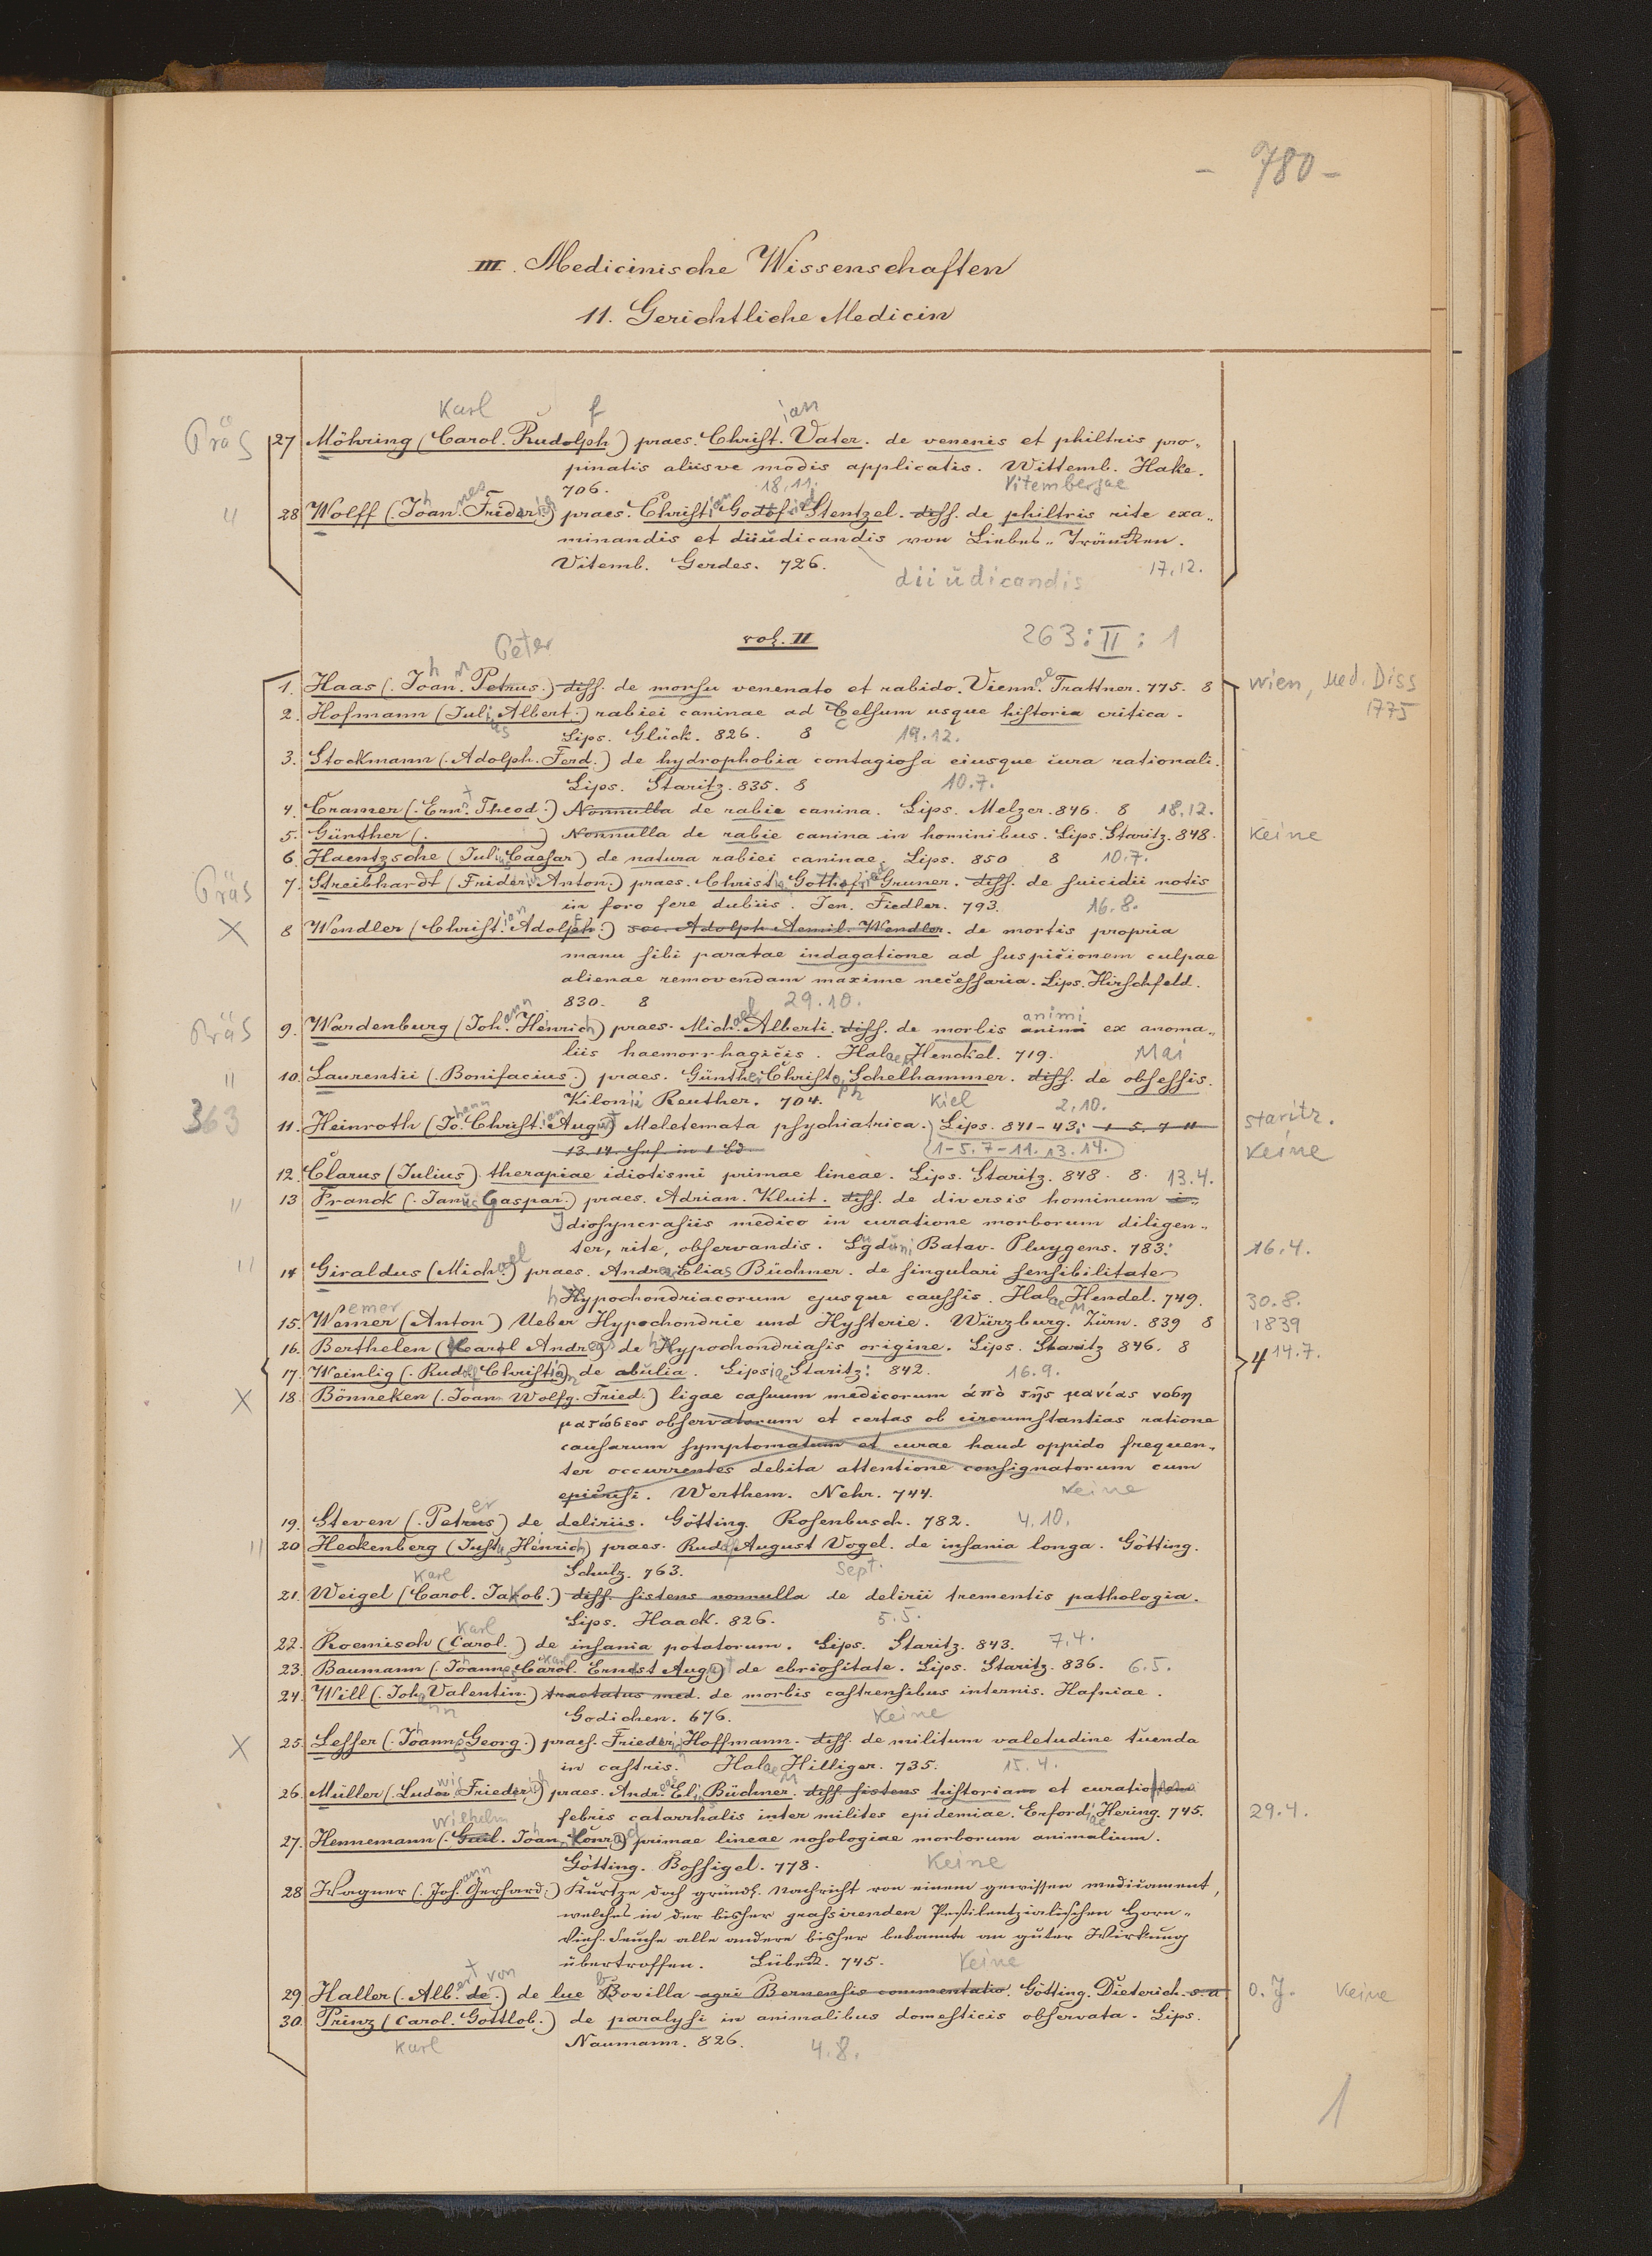 - 780 -
III. Medicinische Wissenschaften
11. Gerichtliche Medicin
Karl f ian
Präs 27 Möhring (Carol. Rudolph) praes. Christ. Vater. de venenis et philtris pro„
pinatis aliisve modis applicatis. Wittemb. Hake.
706. 18.11. Vitembergae
" 28 Wolff (Johannes Friderich) praes. Christian Godofried Stentzel. diss. de philtris rite exa„
minandis et diiudicandis von Liebes„Träncken.
Vitemb. Gerdes. 726. diiudicandis 17.12.
vol. II 263:II:1
Peter
1. Haas (Johann Petrus.) diss. de morsu venenato et rabido. Viennae Trattner. 775. 8 Wien, Med. Diss
1775
2. Hofmann (Julius Albert.) rabiei caninae ad Celsum usque historia critica.
Lips. Glück. 826. 8 19.12.
3. Stockmann (Adolph. Ferd.) de hydrophobia contagiosa eiusque cura rationali.
Lips. Staritz. 835. 8 10.7.
4. Cramer (Ernst Theod.) Nonnulla de rabie canina. Lips. Melzer. 846. 8 18.12.
5. Günther ( ) Nonnulla de rabie canina in hominibus. Lips. Staritz. 848. Keine
6. Haentzsche (Julius Caesar) de natura rabiei caninae. Lips. 850 8 10.7.
Präs 7. Streibhardt (Friderich Anton.) praes. Christian Gothofried Gruner. diss. de suicidii notis
in foro fere dubiis. Jen. Fiedler. 793. 16.8.
X 8 Wendler (Christian Adolf.) soc. Adolph Aemil. Wendler. de mortis propria
manu sibi paratae indagatione ad suspicionem culpae
alienae removendam maxime necessaria. Lips. Hirschfeld.
830. 8 29.10.
Präs 9. Wardenburg (Johann Heinrich) praes. Michael Alberti. diss. de morbis animi ex anoma„
liis haemorrhagicis. Halae M Henckel. 719. Mai
" 10. Laurentii (Bonifacius.) praes. Günther Christoph Schelhammer. diss. de obsessis.
Kilonii Reuther. 704. Kiel 2.10.
363 11. Heinroth (Johann Christian August) Meletemata psychiatrica. Lips. 841-43: 1-5. 7-11 Staritz.
13. 14. Enf. in 1 Bd. (1-5. 7-11. 13. 14.) Keine
12. Clarus (Julius) therapiae idiotismi primae lineae. Lips. Staritz. 848. 8. 13.4.
" 13 Franck (Janus Gaspar.) praes. Adrian. Kluit. diss. de diversis hominum i„
Idiosyncrasiis medico in curatione morborum diligen„
ter, rite, observandis. Lugduni Batav. Pluygens. 783. 16.4.
" 14 Giraldus (Michael) praes. Andreas Elias Büchner. de singulari sensibilitate
hypochondriacorum ejusque caussis. Halae M Hendel. 749. 30.8.
15. Wemer (Anton) Ueber Hypochondrie und Hysterie. Würzburg. Zürn. 839 8 1839
16. Berthelen (Karl Andreas) de hypochondriasis origine. Lips. Staritz 846. 8 4 14.7.
17. Weinlig (Rudolf Christian) de abulia. Lipsiae Staritz: 842. 16.9.
X 18. Bönneken (Joan. Wolfg. Fried.) ligae casuum medicorum ἀπὸ τῆς μανίας νοση
ματώδεος observatorum et certas ob circumstantias ratione
causarum symptomatum et curae haud oppido frequen„
ter occurrentes debita attentione consignatorum cum
epicrisi. Werthem. Nehr. 744. Keine
19. Steven (Peter) de deliriis. Götting. Rosenbusch. 782. 4.10.
" 20 Heckenberg (Justus Henrich) praes. Rudolf August Vogel. de insania longa. Götting.
Schulz. 763. Sept.
Karl
21. Weigel (Carol. Jakob.) diss. sistens nonnulla de delirii trementis pathologia.
Lips. Haack. 826. 5.5.
Karl
22. Roemisch (Carol.) de insania potatorum. Lips. Staritz. 843. 7.4.
23. Baumann (Johannes Carol. Ernst August) de ebriositate. Lips. Staritz. 836. 6.5.
24. Will (Johann Valentin.) tractatus med. de morbis castrensibus internis. Hafniae.
Godichen. 676. Keine
X 25. Lesser (Johannes Georg.) praes. Friederich Hoffmann. diss. de militum valetudine tuenda
in castris. Halae M Hilliger. 735. 15.4.
26. Müller (Ludwis Friederich) praes. Andreas Elias Büchner. diss sistens historiam et curationem
febris catarrhalis inter milites epidemiae. Erfordiae Hering. 745. 29.4.
Wilhelm
27. Hennemann (Guil. Johann Konrad) primae lineae nosologiae morborum animalium.
Götting. Bossigel. 778. Keine
28 Wagner (Johann Gerhard.) Kurtze doch gründl. Nachricht von einem gewissen medicament,
welches in der bisher grassirenden Pestilentzialischen Horn„
Vieh-Seuche alle andere bisher bekannte an guter Wirkung
übertroffen. Lübeck. 745. Keine
29 Haller (Albert von) de lue Bovilla agri Bernensis commentatio. Götting. Dieterich. s.a. o.J. Keine
30. Prinz (Carol. Gottlob.) de paralysi in animalibus domesticis observata. Lips.
Karl Naumann. 826. 4.8.
1